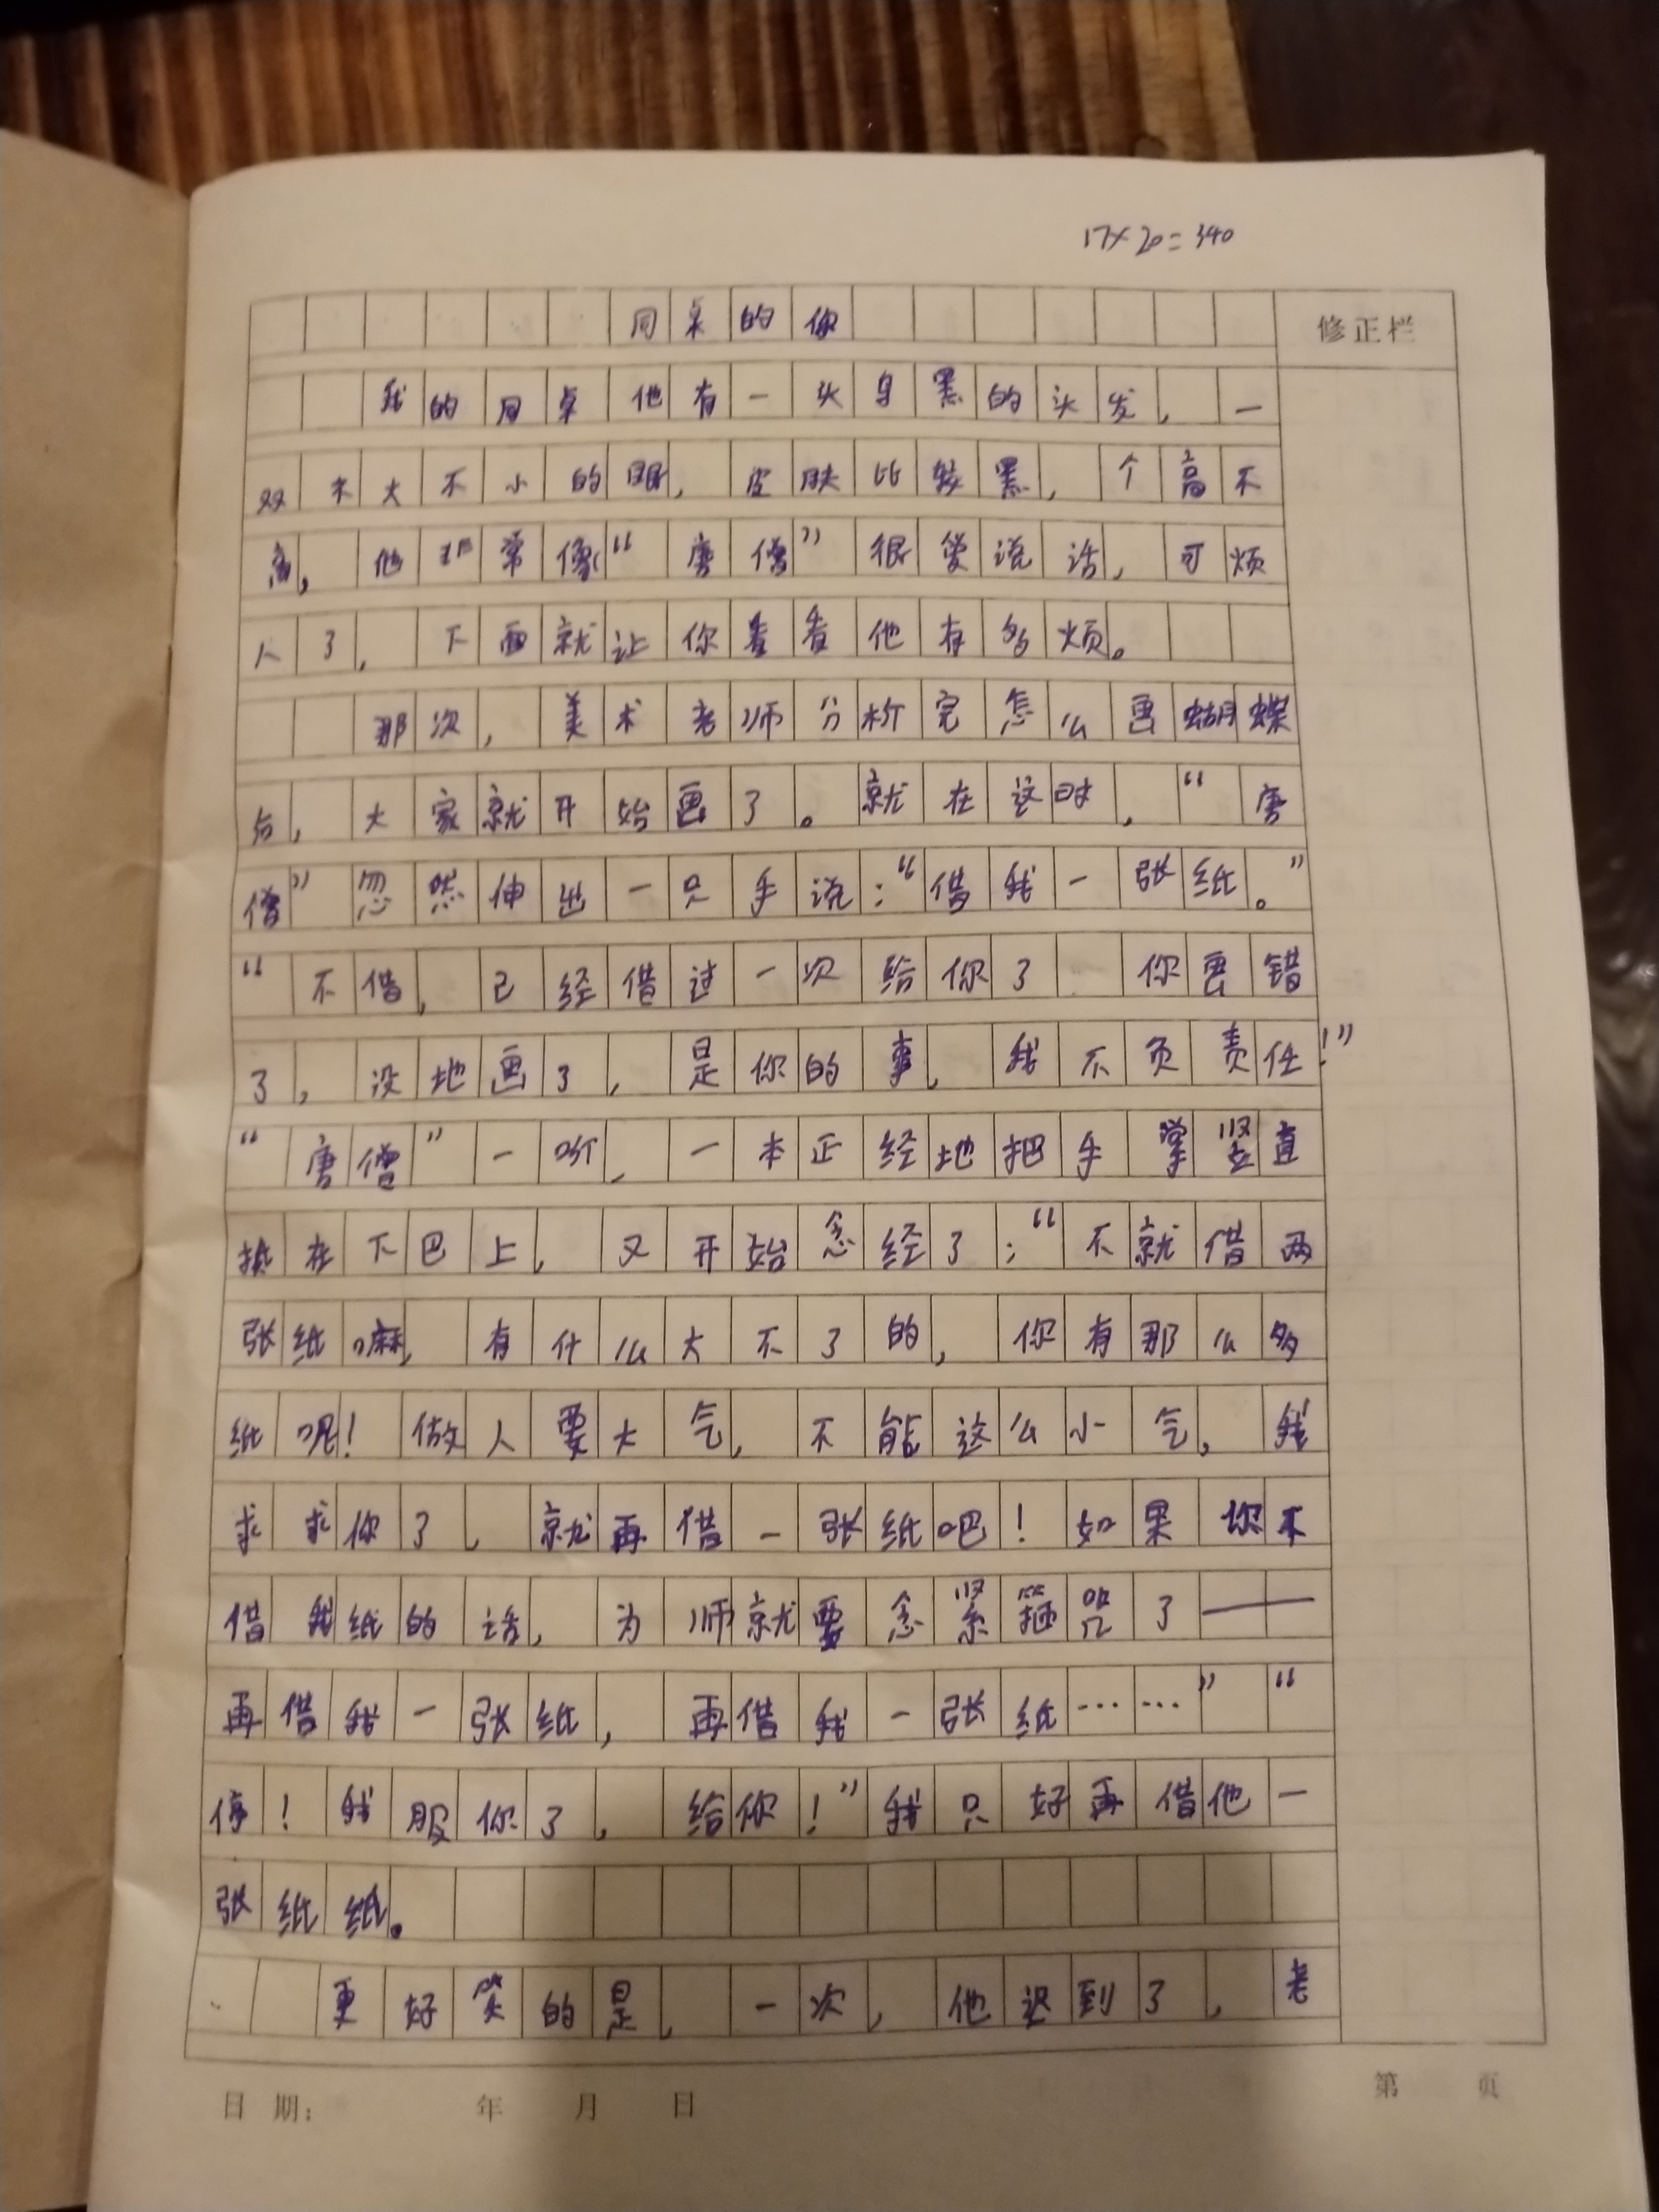 17×20=340
同桌的你
修正栏
我的同桌他有一头乌黑的头发,一
双不大不小的眼,皮肤比较黑,个高不
高,他非常像“唐僧”很爱说话,可烦
人了,下面就让你看看他有多烦。
那次,美术老师分析完怎么画蝴蝶
后,大家就开始画了。就在这时,“唐
僧”忽然伸出一只手说:“借我一张纸。”
“不借,已经借过一次给你了 你画错
了,没地画了,是你的事,我不负责任!”
“唐僧”一听,一本正经地把手掌竖直
在下巴上,又开始念经了:“不就借两
张纸嘛,有什么大不了的,你有那么多
纸呢!做人要大气,不能这么小气,我
求求你了,就再借一张纸吧!如果你不
借我纸的话,为师就要念紧箍咒了——
再借我一张纸,再借我一张纸……”“
停!我服你了,给你!”我只好再借他一
张纸纸。
更好笑的是,一次,他迟到了,老
日期: 年 月 日
第 页